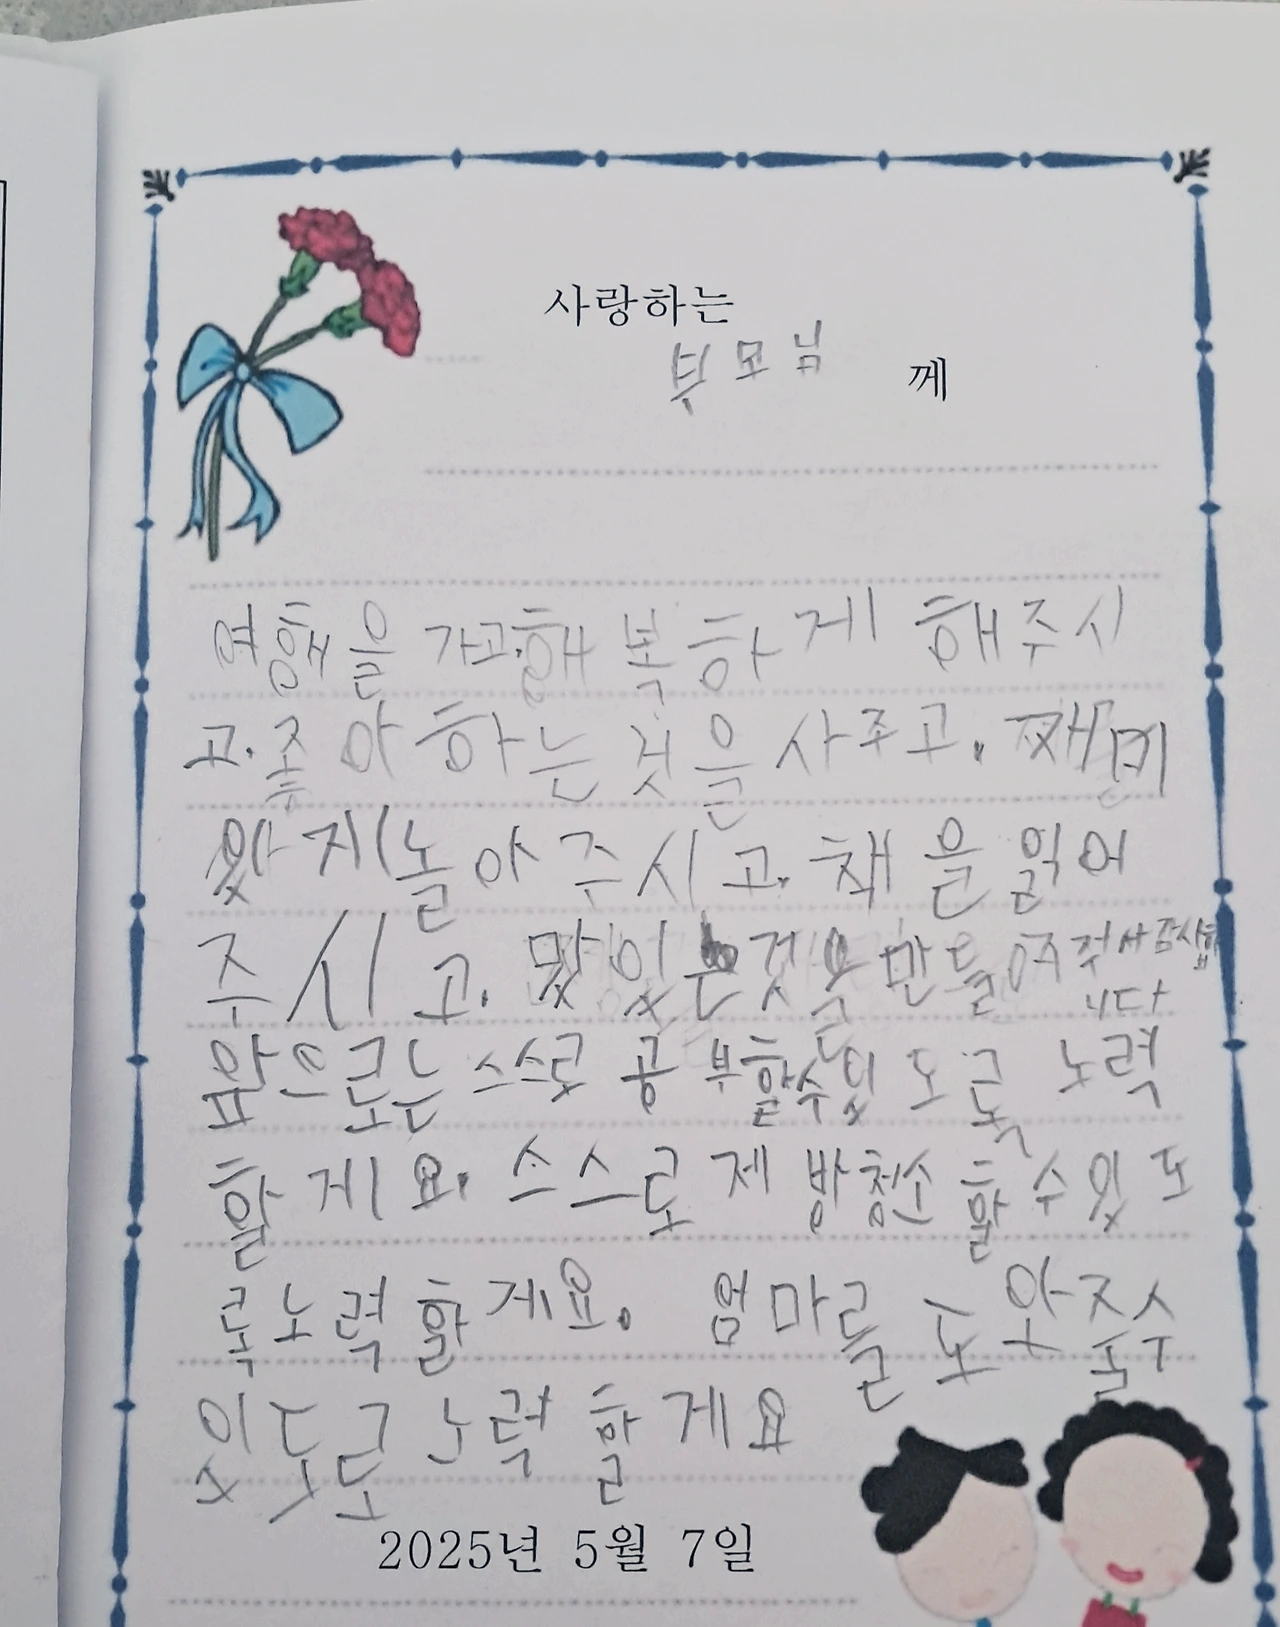 사랑하는
부모님 께
여행을 가고.행복하게 해주시
고.좋아하는것을 사주고. 째미
있게 놀아주시고. 책을 읽어
주시고. 맜있는것을 만들어주져서 감사합
니다
앞으로는 스스로 공부할수있도록 노력
할게요. 스스로 제 방청소 할수있도
록노력할게요. 엄마를 도와줄수
있도록 노력할게요
2025년 5월 7일